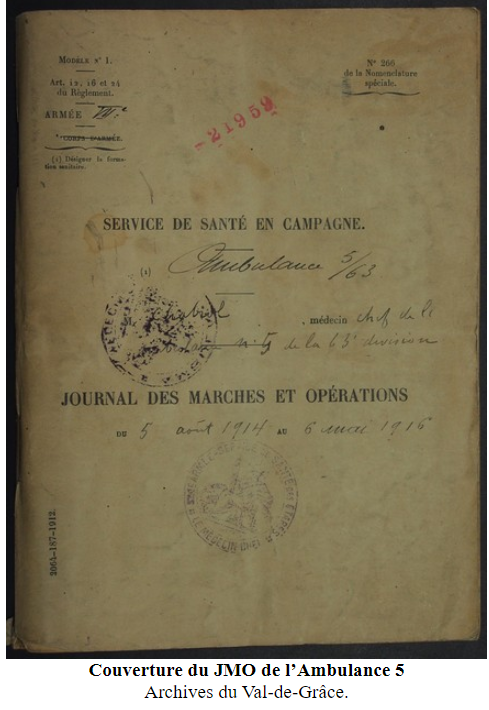 MODÈLE N° 1.
Art. 12, 16 et 24
du Règlement.
ARMÉE VII.e
e CORPS D'ARMÉE.
(1) Désigner la forma-
tion sanitaire.
N° 266
de la Nomenclature
spéciale.
- 21959
SERVICE DE SANTÉ EN CAMPAGNE.
(1) Ambulance 5/63
Chabrol, médecin chef de l
n° 5 de la 63e division
JOURNAL DES MARCHES ET OPÉRATIONS
DU 5 août 1914 AU 6 mai 1916
2064-187-1912.
Couverture du JMO de l'Ambulance 5
Archives du Val-de-Grâce.